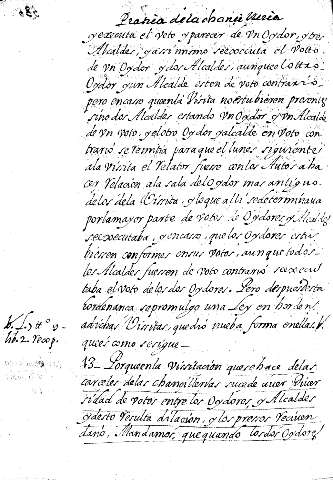 Practica de la chanzilleria
y executa el voto y parecer de Vn Oydor, y tres
Alcaldes, y assi mismo se executa el voto
de Vn Oydor, y dos Alcaldes, aunque lo otro
Oydor y un Alcalde esten de voto contrario,
pero en caso que en la Visita no estubieren presentes
sino dos Alcaldes estando Vn Oydor, y Vn Alcalde
de Vn voto, y el otro Oydor y alcalde en voto con
trario se remitia para que el lunes siguiente
a la visita el Relator fuese con los Autos a ha
cer relacion a la sala del Oydor mas antiguo
de los de la Visita, y lo que alli se determinava
por la mayor parte de votos de Oydores y Alcaldes
se executaba, y en caso, que los Oydores estu
biessen conformes en sus votos, aunque todos
los Alcaldes fuessen de voto contrario se execu
taba el voto de los dos Oydores. Pero despues desta
hordenanza se promulgo una Ley en horden
a dichas Visitas, que dio nueba forma en ellas V.
que es como se sigue
lib. 2. recop.
43 Porque en la Vissitacion que se hace de las
carceles de las chancillerias sucede aver Diver
sidad de votos entre los Oydores, y Alcaldes
y desto resulta dilacion, y los pressos reciven
daño, Mandamos, que quando los dos Oydores